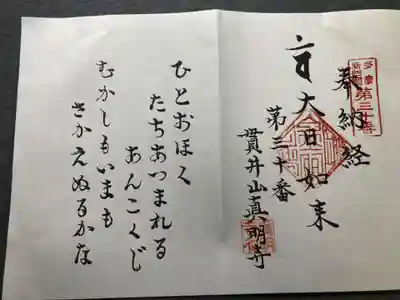 多摩
新四国
第三十番
奉納経
大日如来
第三十番
貫井山真明寺
ひとおほく
たちあつまれる
あんこくじ
むかしもいまも
さかえぬるかな